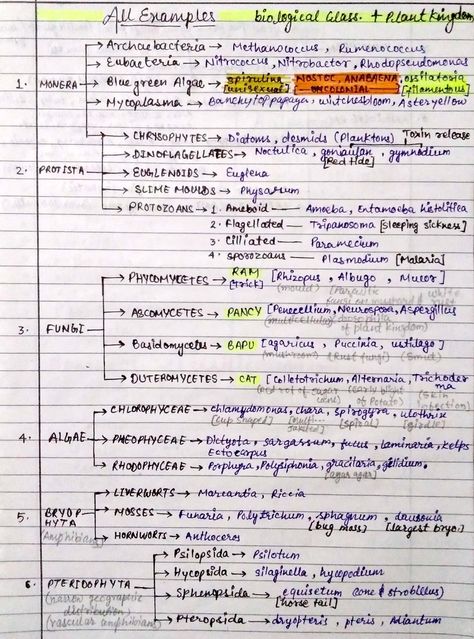 All Examples biological Class. + Plant Kingdom
1. MONERA
Archaebacteria → Methanococcus, Rumenococcus
Eubacteria → Nitrococcus, Nitrobacter, Rhodopseudomonas
Blue green Algae → spirulina [unisexual] [NOSTOC, ANABAENA ONCOLONIAL] ossilatoria [filamentous]
Mycoplasma → Banchytop papaya, witchesbloom, Asteryellow
2. PROTISTA
CHRSOPHYTES → Diatoms, desmids (Planktons) Toxin release
DINOFLAGELLATES → Noctulica, goniaulan, gymnidium
[Red tide]
EUGLENOIDS → Euglena
SLIME MOULDS → Physarum
PROTOZOANS → 1. Ameboid — Amoeba, Entamoeba histolitica
2. Flagellated — Tripanosoma [sleeping sickness]
3. Cilliated — Paramecium
4. sporozoans — Plasmodium [Malaria]
3. FUNGI
PHYCOMYCETES → RAM [trick] [Rhizopus, Albugo, Mucor]
(mould) (Parasitic fungi on mustard) & white
ASCOMYCETES → PANCY [Penecellium, Neurospora, Aspergillus
(multicellular) drosophila of plant kingdom)
Basidomycetes → BAPU [agaricus, Puccinia, ustilago]
(mushroom) (Rust fungi) (Smut)
DUTEROMYCETES → CAT [Colletotrichum, Alternaria, Trichoderma
(red rot of sugar cane) (early blight of Potato) (skin infection)
4. ALGAE
CHLOROPHYCEAE → chlamydomonas, chara, spirogyra, ulothrix
[Cup shaped] [spiral] [girdle]
PHEOPHYCEAE → Dictyota, sargassum, fucus, laminaria, kelps
Ectocarpus
RHODOPHYCEAE → Porphyra, Polysiphonia, gracilaria, gelidium.
[agar agar]
5. BRYOPHYTA
(Amphibians)
LIVERWORTS → Marcantia, Riccia
MOSSES → Funaria, Polytrichum, sphagnum, dausonia
[bog moss] [largest bryo]
HORNWORTS → Anthoceros
6. PTERIDOPHYTA
(narrow geographic distribution)
(vascular amphibians)
Psilopsida → Psilotum
Hycopsida → silaginella, hycopodium
Sphenopsida → equisetum cone & strobilus)
[horse tail]
Pteropsida → dryopteris, pteris, Adiantum